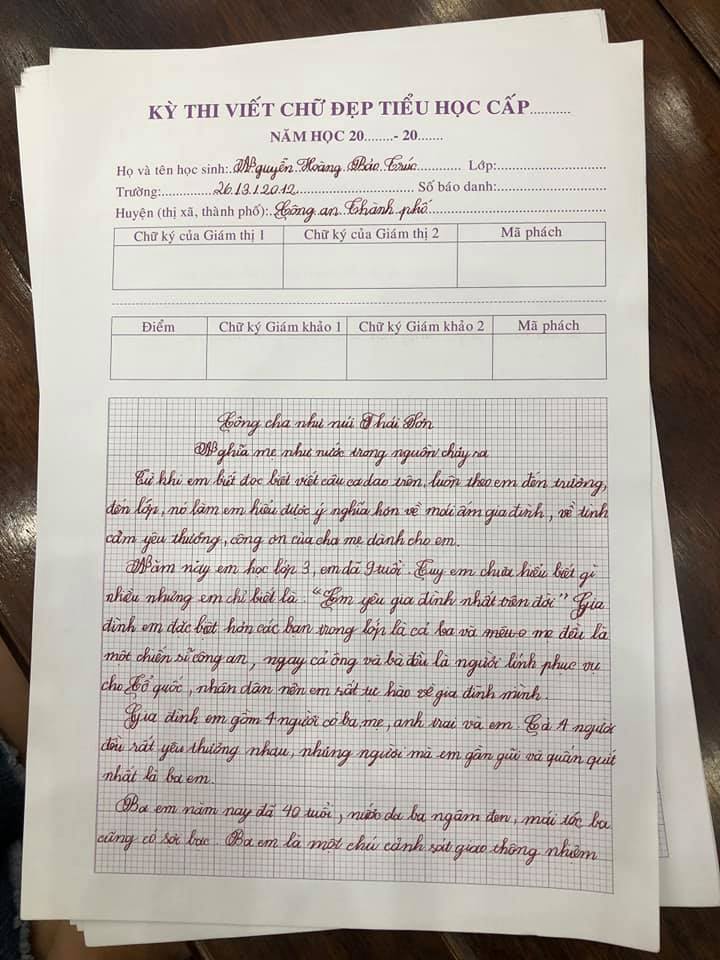 KỲ THI VIẾT CHỮ ĐẸP TIỂU HỌC CẤP...........
NĂM HỌC 20........- 20.......
Họ và tên học sinh: Nguyễn Hoàng Bảo Trúc Lớp:
Trường: 26.13.12012 Số báo danh:
Huyện (thị xã, thành phố): Công an Thành phố
Chữ ký của Giám thị 1 Chữ ký của Giám thị 2 Mã phách
Điểm Chữ ký Giám khảo 1 Chữ ký Giám khảo 2 Mã phách
Công cha như núi Thái Sơn
Nghĩa mẹ như nước trong nguồn chảy ra
Từ khi em biết đọc biết viết câu ca dao trên, luôn theo em đến trường,
đến lớp, nó làm em hiểu được ý nghĩa hơn về mái ấm gia đình, về tình
cảm yêu thương, công ơn của cha mẹ dành cho em.
Năm nay em học lớp 3, em đã 9 tuổi. Tuy em chưa hiểu biết gì
nhiều nhưng em chỉ biết là: "Em yêu gia đình nhất trên đời" Gia
đình em đặc biệt hơn các bạn trong lớp là cả ba và mẹ đều là
một chiến sĩ công an, ngay cả ông và bà đều là người lính phục vụ
cho Tổ quốc, nhân dân nên em rất tự hào về gia đình mình.
Gia đình em gồm 4 người có ba, mẹ, anh trai và em. Cả 4 người
đều rất yêu thương nhau, nhưng người mà em gần gũi và quấn quít
nhất là ba em.
Ba em năm nay đã 40 tuổi, nước da ba ngâm đen, mái tóc ba
cũng có sợi bạc. Ba em là một chú cảnh sát giao thông nhiệm